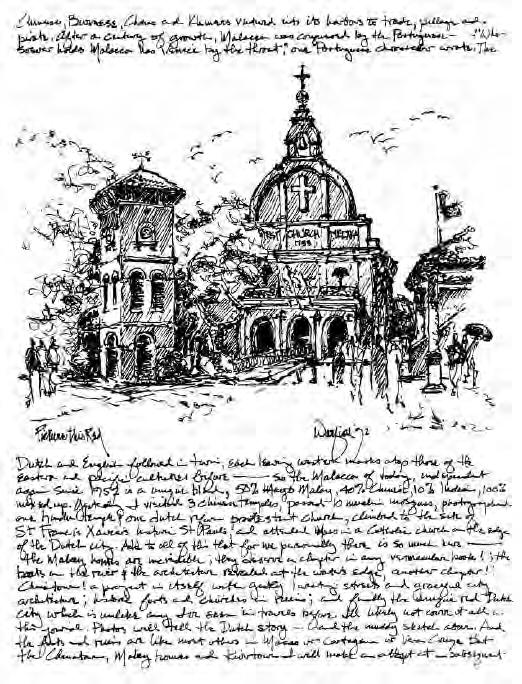 Chinese, Burmese, Chams and Khmers ventured into its harbors to trade, pillage and
pirate. After a century of growth, Malacca was conquered by the Portuguese — "Who-
soever holds Malacca has Venice by the throat," one Portuguese chronicler wrote. The
CHURCH MELAKA
1753
Picture this Red
Dutch and English followed in turn, each leaving western marks atop those of the
eastern and pacific cultures before — So the Malacca of today, independent
again since 1957 is a unique blend, 50% Malay, 40% Chinese, 10% Indian, 100%
mixed up. I visited 3 chinese temples, passed 10 muslim mosques, photographed
one hindu temple & one dutch protestant church, climbed to the site of
St Francis Xavier's historic St Pauls, and attended Mass in a Catholic church on the edge
of the Dutch city. Add to all of this that for me personally there is so much here —
the Malay homes are incredible; they deserve a chapter in any vernacular book!; the
boats on the river & the architecture revealed at the water's edge another chapter!!
Chinatown! a project in itself with gently streets and graceful city
architecture; historic forts and churches in ruins; and finally the unique red Dutch
city which is unlike any I've seen in travels before. I'll likely not cover it all in
this journal. Photos will tell the Dutch story — and the muddy sketch above. And
the forts and ruins are like most others — Macao or Cartagena or Vera Cruz. But
the Chinatown, Malay houses and Rivertown I will make an attempt at — subsequent